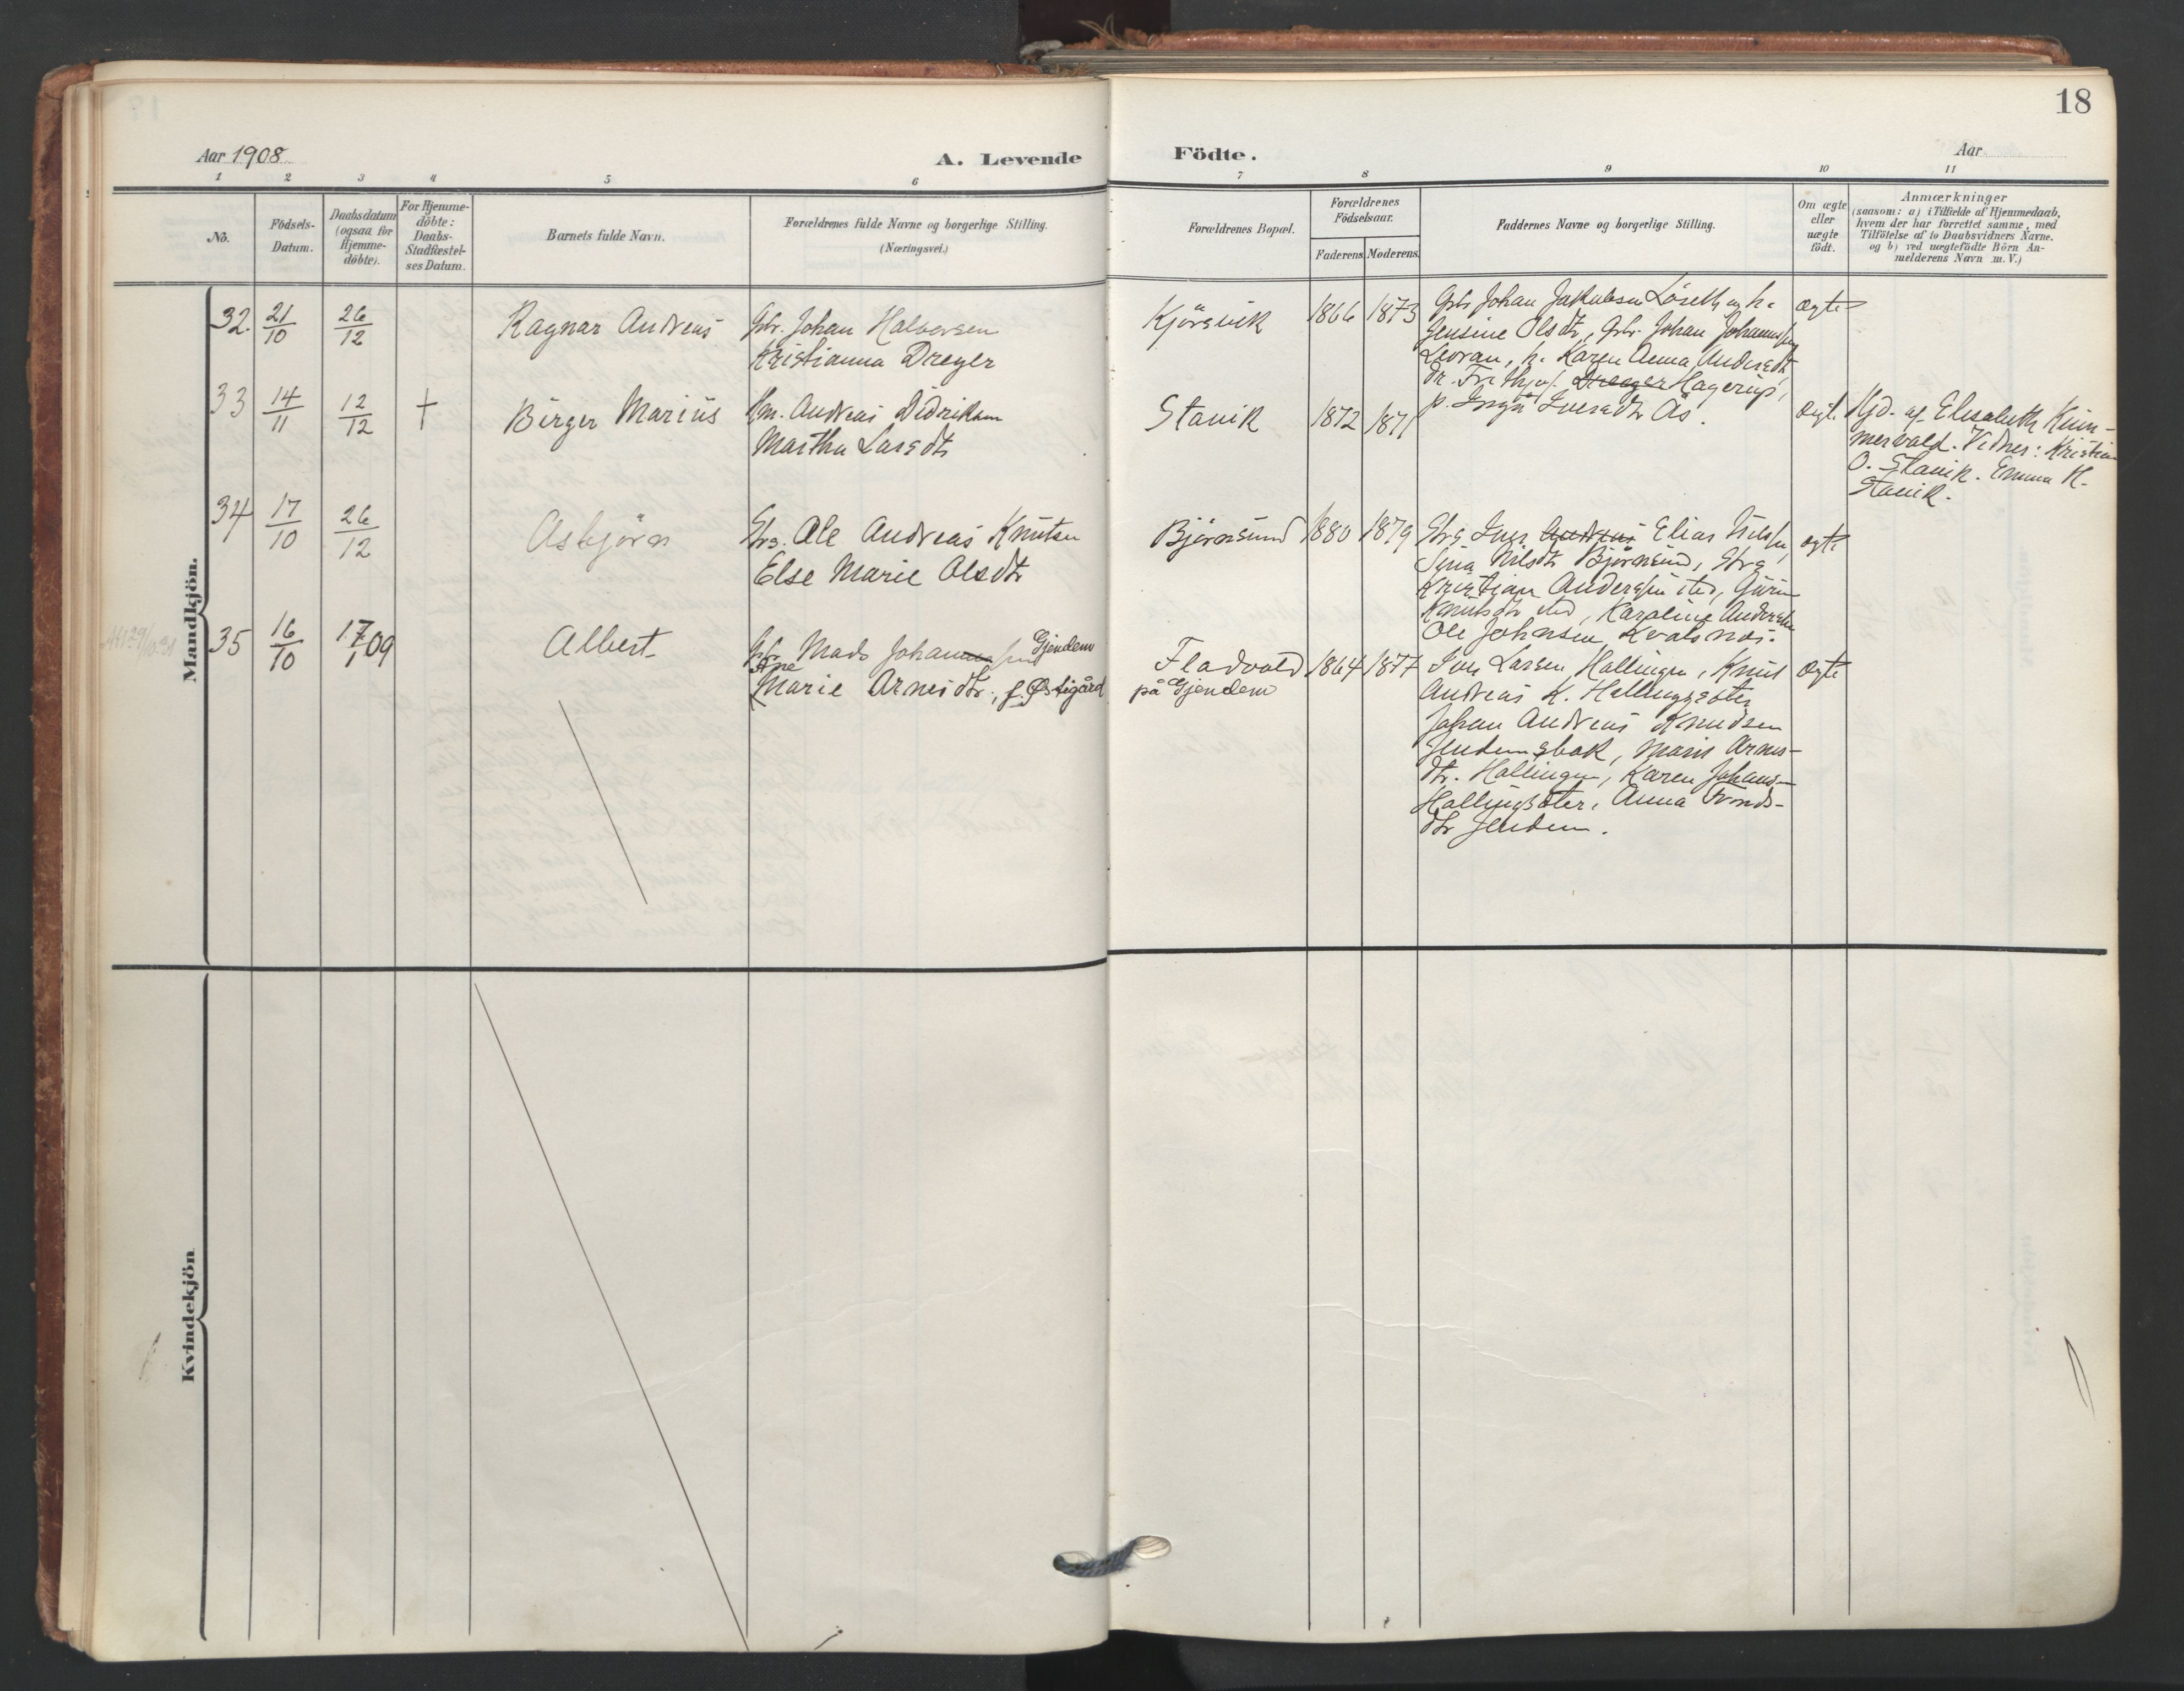 18
Aar 1908
A. Levende Födte.
Aar
1 2 3 4 5 6 7 8 9 10 11
No.
Födsels-
Datum.
Daabsdatum
(ogsaa for
Hjemme-
döbte).
For Hjemme-
döbte:
Daabs-
Stadfæstel-
ses Datum.
Barnets fulde Navn.
Forældrenes fulde Navne og borgerlige Stilling.
(Næringsvei.)
Forældrenes Bopæl.
Forældrenes
Födselsaar.
Faderens. Moderens.
Faddernes Navne og borgerlige Stilling.
Om ægte
eller
uægte
födt.
Anmærkninger
(saasom: a) i Tilfælde af Hjemmedaab,
hvem der har forrettet samme, med
Tilföielse af to Daabsvidners Navne,
og b) ved uægtefödte Börn An-
melderens Navn m. V.)
Mandkjön.
32. 21/10 26/12 Ragnar Andreas
Gbr. Johan Halvorsen
Kristianna Dreyer
Kjörsvik 1866 1873
Gbr. Johan Jakobsen Löseth og h.
Jensine Olsdtr, Gbr. Johan Johannessen
Leoran, h. Karen Anna Andersdtr
Dr. Frithjof Dreyer Hagerup,
p. Inga Iversdtr Ås.
ægte
33 14/11 12/12 † Birger Marius
Km. Andreas Didriksen
Martha Larsdtr
Stavik 1872 1871
ægt.
Hjd. af Elisabeth Kum-
mervold. Vidner: Kristian
O. Stavik. Emma K.
Stavik.
34 17/10 26/12 Asbjörn
Strs. Ole Andreas Knutsen
Else Marie Olsdtr
Björnsund 1880 1879
Strs Iver Andreas Elias Nilssen,
Sina Nilsdtr Björnsund, Strs
Kristian Anderssen sted, Guri
Knutsdtr sted, Karoline Andersdtr
Ole Johnsen Kvalsnes.
ægte
35 16/10 17/1 09 Albert
Gbr. Mads Johannessen Gjendem
Ane
Marie Arnesdtr., f. Østigård
Fladvold
på Gjendem
1864 1877
Iver Larsen Hallingen, Knut
Andreas K. Hallingseter
Johan Andreas Knudsen
Jendemsbak, Marit Arnes-
dtr. Hallingen, Karen Johans-
Hallingseter, Anna Tronds-
dtr Jendem.
ægte
Kvindekjön